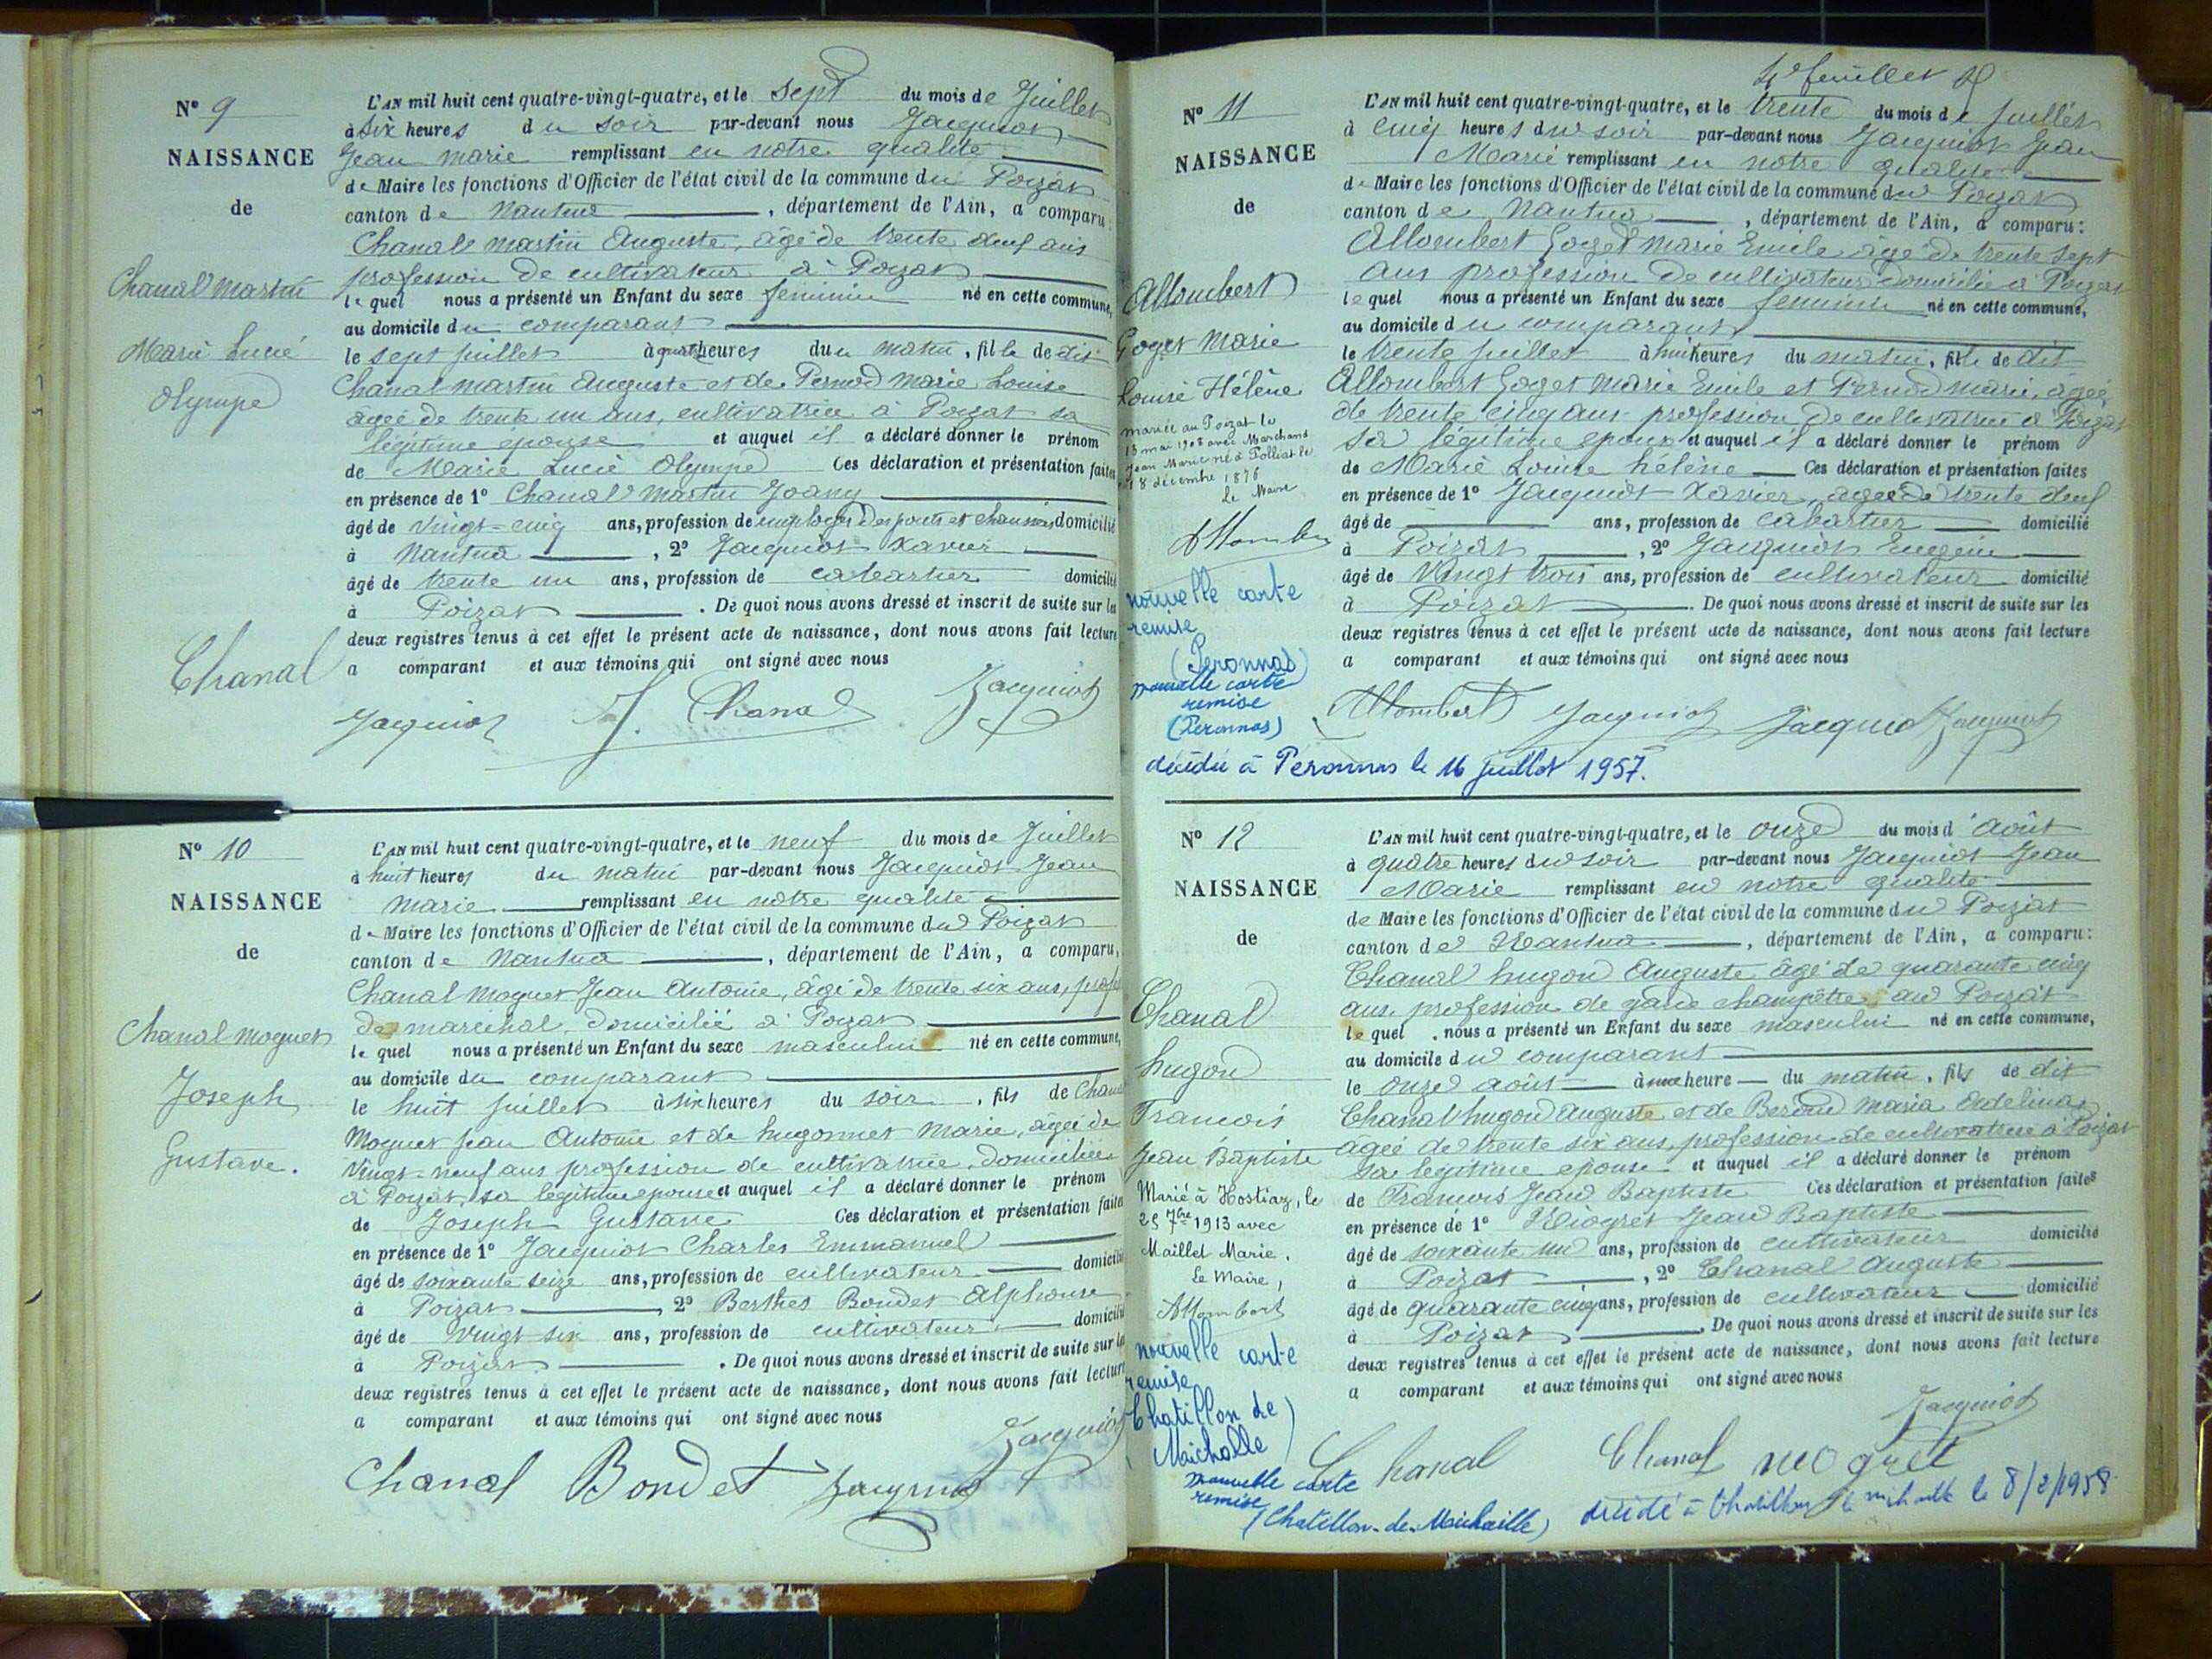 Nº 9
NAISSANCE
de
Chanal Martin
Marie Lucie
Olympe
L'AN mil huit cent quatre-vingt-quatre, et le sept du mois de Juillet
à six heures du soir par-devant nous Jacquiot
Jean marie remplissant en notre qualité
de Maire les fonctions d'Officier de l'état civil de la commune du Poizat
canton de Nantua, département de l'Ain, a comparu :
Chanal martin Auguste, âgé de trente neuf ans
profession de cultivateur à Poizat
lequel nous a présenté un Enfant du sexe feminin né en cette commune,
au domicile du comparant
le sept juillet à quatre heures du matin, fille de dit
Chanal martin Auguste et de Pernod Marie Louise
âgée de trente un ans, cultivatrice à Poizat sa
légitime epouse et auquel il a déclaré donner le prénom
de Marie Lucie Olympe Ces déclaration et présentation faites
en présence de 1º Chanal Martin Joany
âgé de vingt-cinq ans, profession de employé des ponts et chaussées domicilié
à Nantua, 2º Jacquiot Xavier
âgé de trente un ans, profession de cabartier domicilié
à Poizat. De quoi nous avons dressé et inscrit de suite sur les
deux registres tenus à cet effet le présent acte de naissance, dont nous avons fait lecture
a comparant et aux témoins qui ont signé avec nous
Chanal
Jacquiot J. Chanal Jacquiot
Nº 10
NAISSANCE
de
Chanal moguet
Joseph
Gustave.
L'AN mil huit cent quatre-vingt-quatre, et le neuf du mois de Juillet
à huit heures du matin par-devant nous Jacquiot Jean
Marie remplissant en notre qualité
de Maire les fonctions d'Officier de l'état civil de la commune du Poizat
canton de Nantua, département de l'Ain, a comparu,
Chanal Moguet Jean Antoine, âgé de trente six ans, prof
de maréchal, domicilié à Poizat
lequel nous a présenté un Enfant du sexe masculin né en cette commune,
au domicile du comparant
le huit juillet à six heures du soir, fils de Chanal
Moguet jean Antoine et de hugonnet Marie, âgée de
vingt-neuf ans profession de cultivatrice, domiciliée
à Poizat, sa légitime epouse et auquel il a déclaré donner le prénom
de Joseph Gustave Ces déclaration et présentation faites
en présence de 1º Jacquiot Charles Emmanuel
âgé de soixante seize ans, profession de cultivateur domicilié
à Poizat, 2º Berthet Bondet Alphonse
âgé de vingt six ans, profession de cultivateur domicilié
à Poizat. De quoi nous avons dressé et inscrit de suite sur les
deux registres tenus à cet effet le présent acte de naissance, dont nous avons fait lecture
a comparant et aux témoins qui ont signé avec nous
Jacquiot
Chanal Bondet Jacquiot
4e feuillet
Nº 11
NAISSANCE
de
Allombert
Goget Marie
Louise Hélène
mariée au Poizat le
13 mai 1908 avec Marchand
Jean Marie né à Polliat le
18 décembre 1876
Le Maire
Allomber
nouvelle carte
remise
(Peronnas)
nouvelle carte
remise
(Peronnas)
décédée à Peronnas le 16 juillet 1957.
L'AN mil huit cent quatre-vingt-quatre, et le trente du mois de juillet
à cinq heures du soir par-devant nous Jacquiot Jean
Marie remplissant en notre qualité
de Maire les fonctions d'Officier de l'état civil de la commune du Poizat
canton de Nantua, département de l'Ain, a comparu :
Allombert Goget Marie Emile âgé de trente sept
ans profession de cultivateur domicilié à Poizat
lequel nous a présenté un Enfant du sexe feminin né en cette commune,
au domicile du comparant
le trente juillet à huit heures du matin, fille de dit
Allombert Goget Marie Emile et Pernod marie, âgée
de trente cinq ans profession de cultivatrice à Poizat
sa légitime epouse et auquel il a déclaré donner le prénom
de Marie Louise hélène Ces déclaration et présentation faites
en présence de 1º Jacquiot Xavier, agée de trente deux
âgé de ans, profession de cabartier domicilié
à Poizat, 2º Jacquiot Eugène
âgé de vingt trois ans, profession de cultivateur domicilié
à Poizat. De quoi nous avons dressé et inscrit de suite sur les
deux registres tenus à cet effet le présent acte de naissance, dont nous avons fait lecture
a comparant et aux témoins qui ont signé avec nous
Allombert Jacquiot Jacquiot Jacquiot
Nº 12
NAISSANCE
de
Chanal
hugon
Francois
Jean Baptiste
Marié à Hostiaz, le
25 7bre 1913 avec
Maillet Marie.
Le Maire,
Allombert
nouvelle carte
remise
(Chatillon de
Michaille)
nouvelle carte
remise
(Chatillon-de-Michaille)
L'AN mil huit cent quatre-vingt-quatre, et le onze du mois d'août
à quatre heures du soir par-devant nous Jacquiot Jean
Marie remplissant en notre qualité
de Maire les fonctions d'Officier de l'état civil de la commune du Poizat
canton de Nantua, département de l'Ain, a comparu :
Chanal hugon Auguste âgé de quarante cinq
ans, profession de garde champêtre, au Poizat
lequel nous a présenté un Enfant du sexe masculin né en cette commune,
au domicile du comparant
le onze août à une heure du matin, fils de dit
Chanal hugon Auguste et de Beroud Maria Adelina
âgée de trente six ans, profession de cultivatrice à Poizat
sa légitime epouse et auquel il a déclaré donner le prénom
de Francois Jean Baptiste Ces déclaration et présentation faites
en présence de 1º Jean Baptiste
âgé de soixante un ans, profession de cultivateur domicilié
à Poizat, 2º Chanal Auguste
âgé de quarante cinq ans, profession de cultivateur domicilié
à Poizat. De quoi nous avons dressé et inscrit de suite sur les
deux registres tenus à cet effet le présent acte de naissance, dont nous avons fait lecture
a comparant et aux témoins qui ont signé avec nous
Jacquiot
Chanal Chanal mogret
décédé à Chatillon de michaille le 8/2/1958